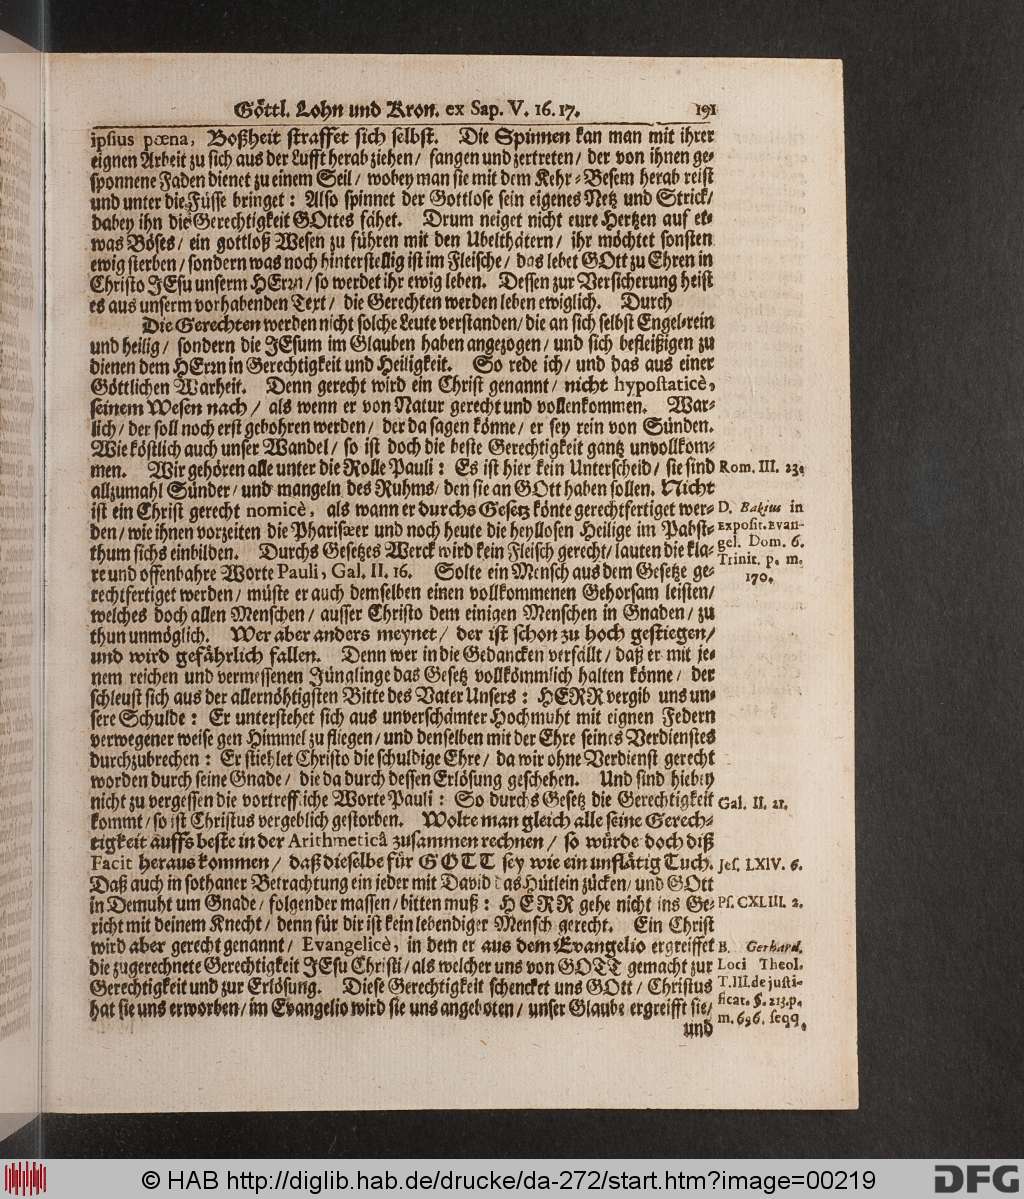 Göttl. Lohn und Kron. ex Sap. V. 16. 17. 191
ipsius pœna, Boßheit straffet sich selbst. Die Spinnen kan man mit ihrer
eignen Arbeit zu sich aus der Lufft herab ziehen / fangen und zertreten / der von ihnen ge-
sponnene Faden dienet zu einem Seil / wobey man sie mit dem Kehr-Besem herab reist
und unter die Füsse bringet : Also spinnet der Gottlose sein eigenes Netz und Strick /
dabey ihn die Gerechtigkeit GOttes fähet. Drum neiget nicht eure Hertzen auf et-
was Böses / ein gottloß Wesen zu führen mit den Ubelthätern / ihr möchtet sonsten
ewig sterben / sondern was noch hinterstellig ist im Fleische / das lebet GOtt zu Ehren in
Christo JEsu unserm HErrn / so werdet ihr ewig leben. Dessen zur Versicherung heist
es aus unserm vorhabenden Text / die Gerechten werden leben ewiglich. Durch
Die Gerechten werden nicht solche Leute verstanden / die an sich selbst Engel-rein
und heilig / sondern die JEsum im Glauben haben angezogen / und sich befleißigen zu
dienen dem HErrn in Gerechtigkeit und Heiligkeit. So rede ich / und das aus einer
Göttlichen Warheit. Denn gerecht wird ein Christ genannt / nicht hypostaticè,
seinem Wesen nach / als wenn er von Natur gerecht und vollenkommen. War-
lich / der soll noch erst gebohren werden / der da sagen könne / er sey rein von Sünden.
Wie köstlich auch unser Wandel / so ist doch die beste Gerechtigkeit gantz unvollkom-
men. Wir gehören alle unter die Rolle Pauli : Es ist hier kein Unterscheid / sie sind Rom. III. 23.
allzumahl Sünder / und mangeln des Ruhms / den sie an GOtt haben sollen. Nicht
ist ein Christ gerecht nomicè, als wann er durchs Gesetz könte gerechtfertiget wer- D. Bakius in
den / wie ihnen vorzeiten die Pharisæer und noch heute die heyllosen Heilige im Pabst- Exposit. Evan-
thum sichs einbilden. Durchs Gesetzes Werck wird kein Fleisch gerecht / lauten die kla- gel. Dom. 6.
re und offenbahre Worte Pauli, Gal. II. 16. Solte ein Mensch aus dem Gesetze ge- Trinit. p. m.
rechtfertiget werden / müste er auch demselben einen vollkommenen Gehorsam leisten / 170.
welches doch allen Menschen / ausser Christo dem einigen Menschen in Gnaden / zu
thun unmöglich. Wer aber anders meynet / der ist schon zu hoch gestiegen /
und wird gefährlich fallen. Denn wer in die Gedancken verfällt / daß er mit je-
nem reichen und vermessenen Jünglinge das Gesetz vollkömmlich halten könne / der
schleust sich aus der allernöhtigsten Bitte des Vater Unsers : HERR vergib uns un-
sere Schulde : Er unterstehet sich aus unverschämter Hochmuht mit eignen Federn
verwegener weise gen Himmel zu fliegen / und denselben mit der Ehre seines Verdienstes
durchzubrechen : Er stiehlet Christo die schuldige Ehre / da wir ohne Verdienst gerecht
worden durch seine Gnade / die da durch dessen Erlösung geschehen. Und sind hiebey
nicht zu vergessen die vortreffliche Worte Pauli : So durchs Gesetz die Gerechtigkeit Gal. II. 21.
kommt / so ist Christus vergeblich gestorben. Wolte man gleich alle seine Gerech-
tigkeit auffs beste in der Arithmeticâ zusammen rechnen / so würde doch diß
Facit heraus kommen / daß dieselbe für GOTT sey wie ein unflätig Tuch. Jes. LXIV. 6.
Daß auch in sothaner Betrachtung ein jeder mit David das Hütlein zücken / und GOtt
in Demuht um Gnade / folgender massen / bitten muß : HERR gehe nicht ins Ge- Ps. CXLIII. 2.
richt mit deinem Knecht / denn für dir ist kein lebendiger Mensch gerecht. Ein Christ
wird aber gerecht genannt / Evangelicè, in dem er aus dem Evangelio ergreiffet B. Gerhard.
die zugerechnete Gerechtigkeit JEsu Christi / als welcher uns von GOTT gemacht zur Loci Theol.
Gerechtigkeit und zur Erlösung. Diese Gerechtigkeit schencket uns GOtt / Christus T. III. de justi-
hat sie uns erworben / im Evangelio wird sie uns angeboten / unser Glaube ergreifft sie / ficat. §. 213. p.
und m. 696. seqq.
© HAB http://diglib.hab.de/drucke/da-272/start.htm?image=00219 DFG